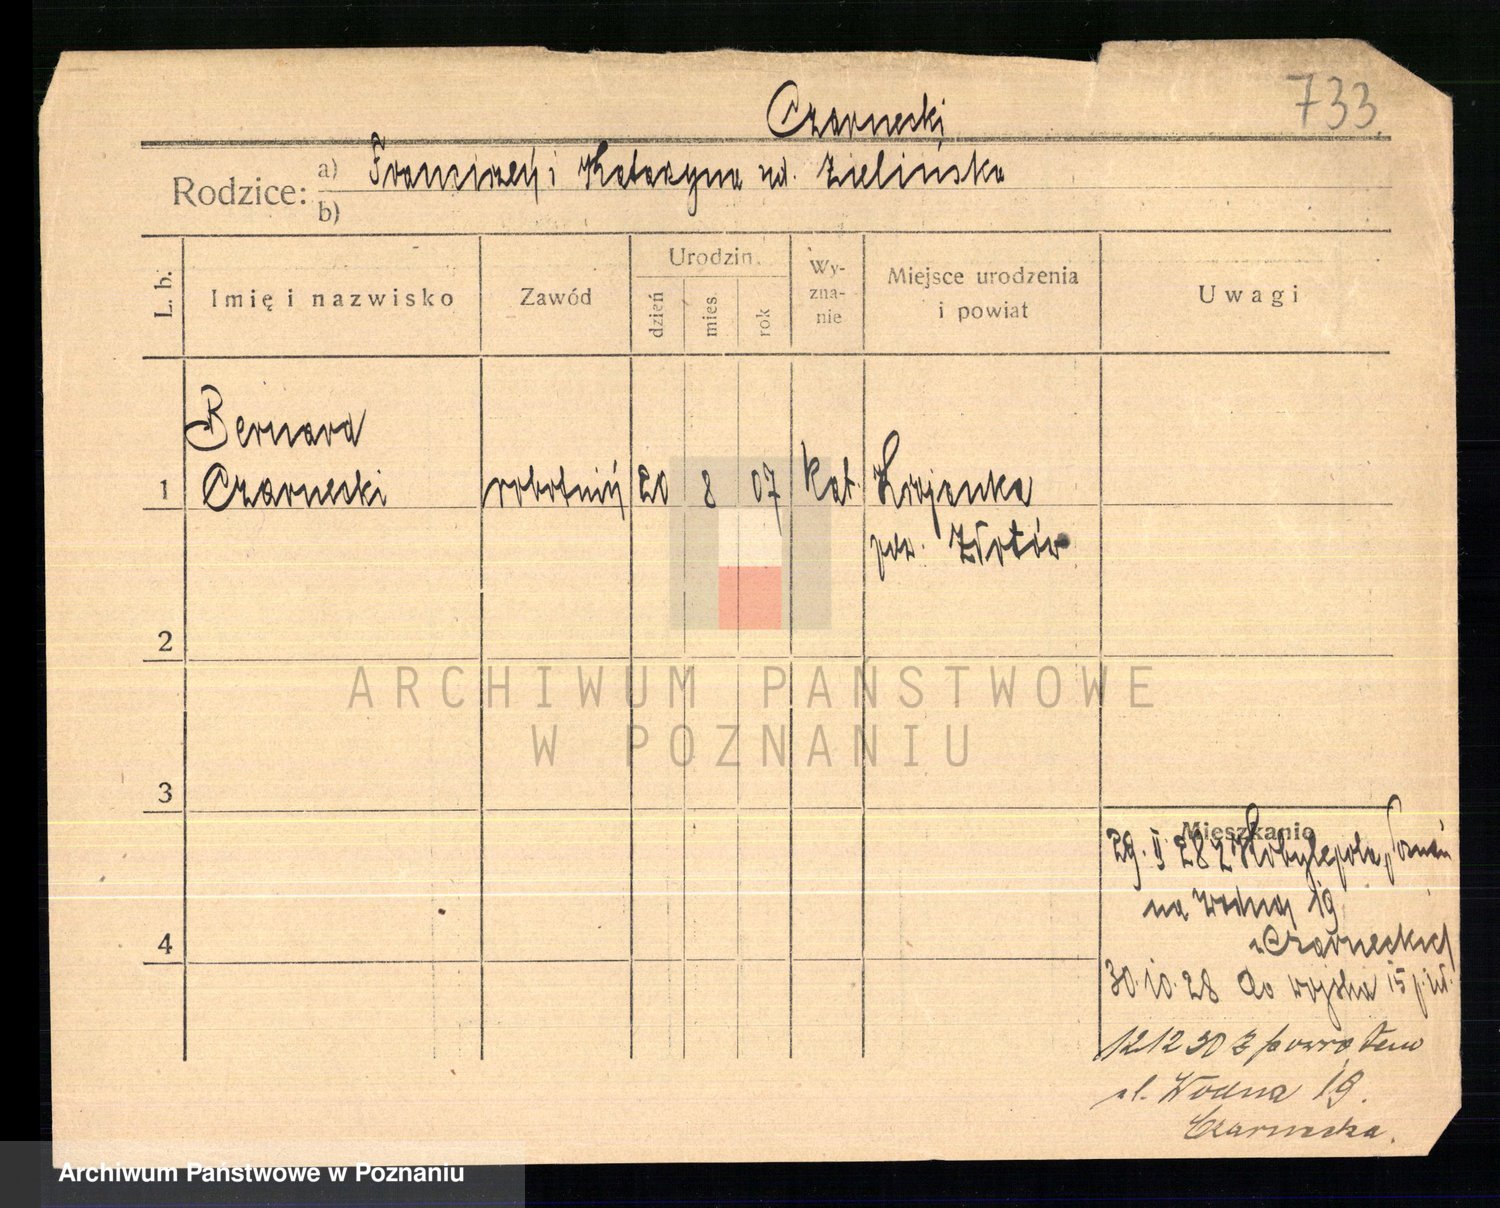 733.
Czarnecki
Rodzice: a) Franciszek i Katarzyna ur. Zielińska
b)
L. b. Imię i nazwisko Zawód Urodzin. dzień mies. rok Wy-zna-nie Miejsce urodzenia i powiat Uwagi
Bernard
1 Czarnecki robotnik 20 8 07 kat. Krojanka
pow. Złotów
2
ARCHIWUM PAŃSTWOWE
W POZNANIU
3
Mieszkanie
29. II 28 z Kobylepola, Poznań
na Wodną 19
Czarneckich
4
30.10.28 do wojska 15
12 12 30 z powrotem
ul. Wodna 19.
Czarnecka.
Archiwum Państwowe w Poznaniu